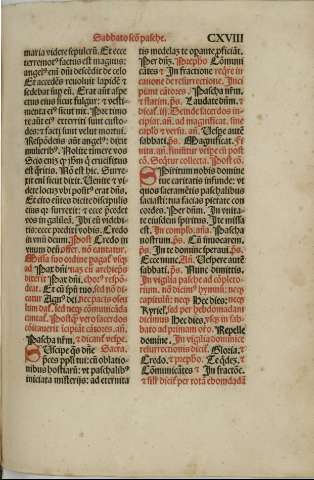 Sabbato scõ pasche. CXVIII
maria videre sepulcrũ. Et ecce
terremot⁹ factus est magnus:
angel⁹ em̃ dñi descẽdit de celo
Et accedẽs reuoluit lapidẽ et
sedebat sup eũ. Erat aũt aspe
ctus eius sicut fulgur: et vesti-
mẽta ei⁹ sicut nix. Pre timo
re aũt ei⁹ exterriti sunt custo-
des: et facti sunt velut mortui.
Respõdens aũt angel⁹: dixit
mulierib⁹. Nolite timere vos
Scio enis q̃ iesum q̃ crucifixus
est q̃ritis. Nõ est hic. Surre-
xit eni sicut dixit. Venite et vi-
dete locũ vbi posit⁹ erat dñs.
Et cito eũtes dicite discipulis
eius q̃ surrexit: et ecce precedet
vos in galileã. Ibi eũ videbi-
tis: ecce predixi vobis. Credo
in vnũ deum. Post Credo in
vnum deũ: offer. nõ cantatur.
Missa suo ordine pagat⁹ vsq̃
ad Pax dñi: nas cũ archieps
dixerit Pax dñi. chor⁹ respõ-
deat. Et cũ spũ tuo. sed nõ di-
catur Agn⁹ dei. nec pacis oscu
lum daf. sed necq̃ cõmunicãda
cantaf. Postq̃ vero sacerdos
cõicauerit: icipiat cãtores. añ.
Pascha nr̃m. et dicant vespe.
Suscipe q̃s dñe Sacra.
p̃ces ppl̃i tui: cũ oblatio-
nibus hostiarũ: vt paschalib⁹
iniciata misterijs: ad eternita
tis medelaz te opante pficiãt.
Per dñz. Prepho Cõmuni
cãtes et In fractione req̃re in
cantone de resurrectione. Inci
piunt cãtores. Pascha nr̃m.
et statim ps. Laudate dñm. et
dicaf iij. Deinde sacerdos in-
cipiat. añ. ad magnificat. sine
caplo et versu. añ. Vespe autẽ
sabbati. ps. Magnificat. Fi
nita añ. finitur vespe cũ post
cõ. Seqtur collecta. Post cõ.
Spiritum nobis domine
tue caritatis infunde: vt
quos sacramẽtis paschalibus
saciasti: tua facias pietate con
cordes. Per dñm. In vnita-
te eiusdem spiritus. Ite missa
est. In cõpl̃o. aña. Pascha
nostrum. ps. Cũ inuocarem.
ps. In te domine speraui. ps.
Ecce nunc. Añ. Vespere autẽ
sabbati. ps. Nunc dimittis.
In vigilia pasche ad cõpleto-
riũ. nõ dicim⁹ hymnũ: necq̃
capitulũ: necq̃ Hec dies: necq̃
Kyriel. sed per hebdomadam
dicimus Hec dies. vsq̃ in sab-
bato ad primam oro. Repelle
domine. In vigilia dominice
resurrectionis dicif. Gloria. et
Credo. et prepho. Te q̃dez. et
Cõmunicãtes et In fractõe.
et sitl dicif per totã ebomadã